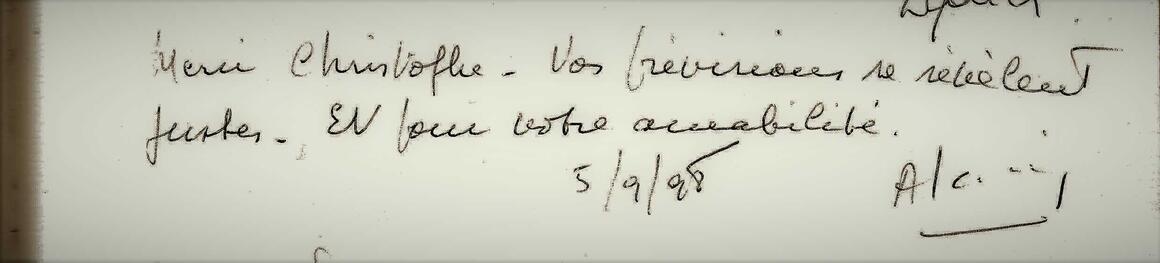 Merci Christophe - Vos prévisions se révèlent
justes - Et pour votre amabilité.
5/9/98